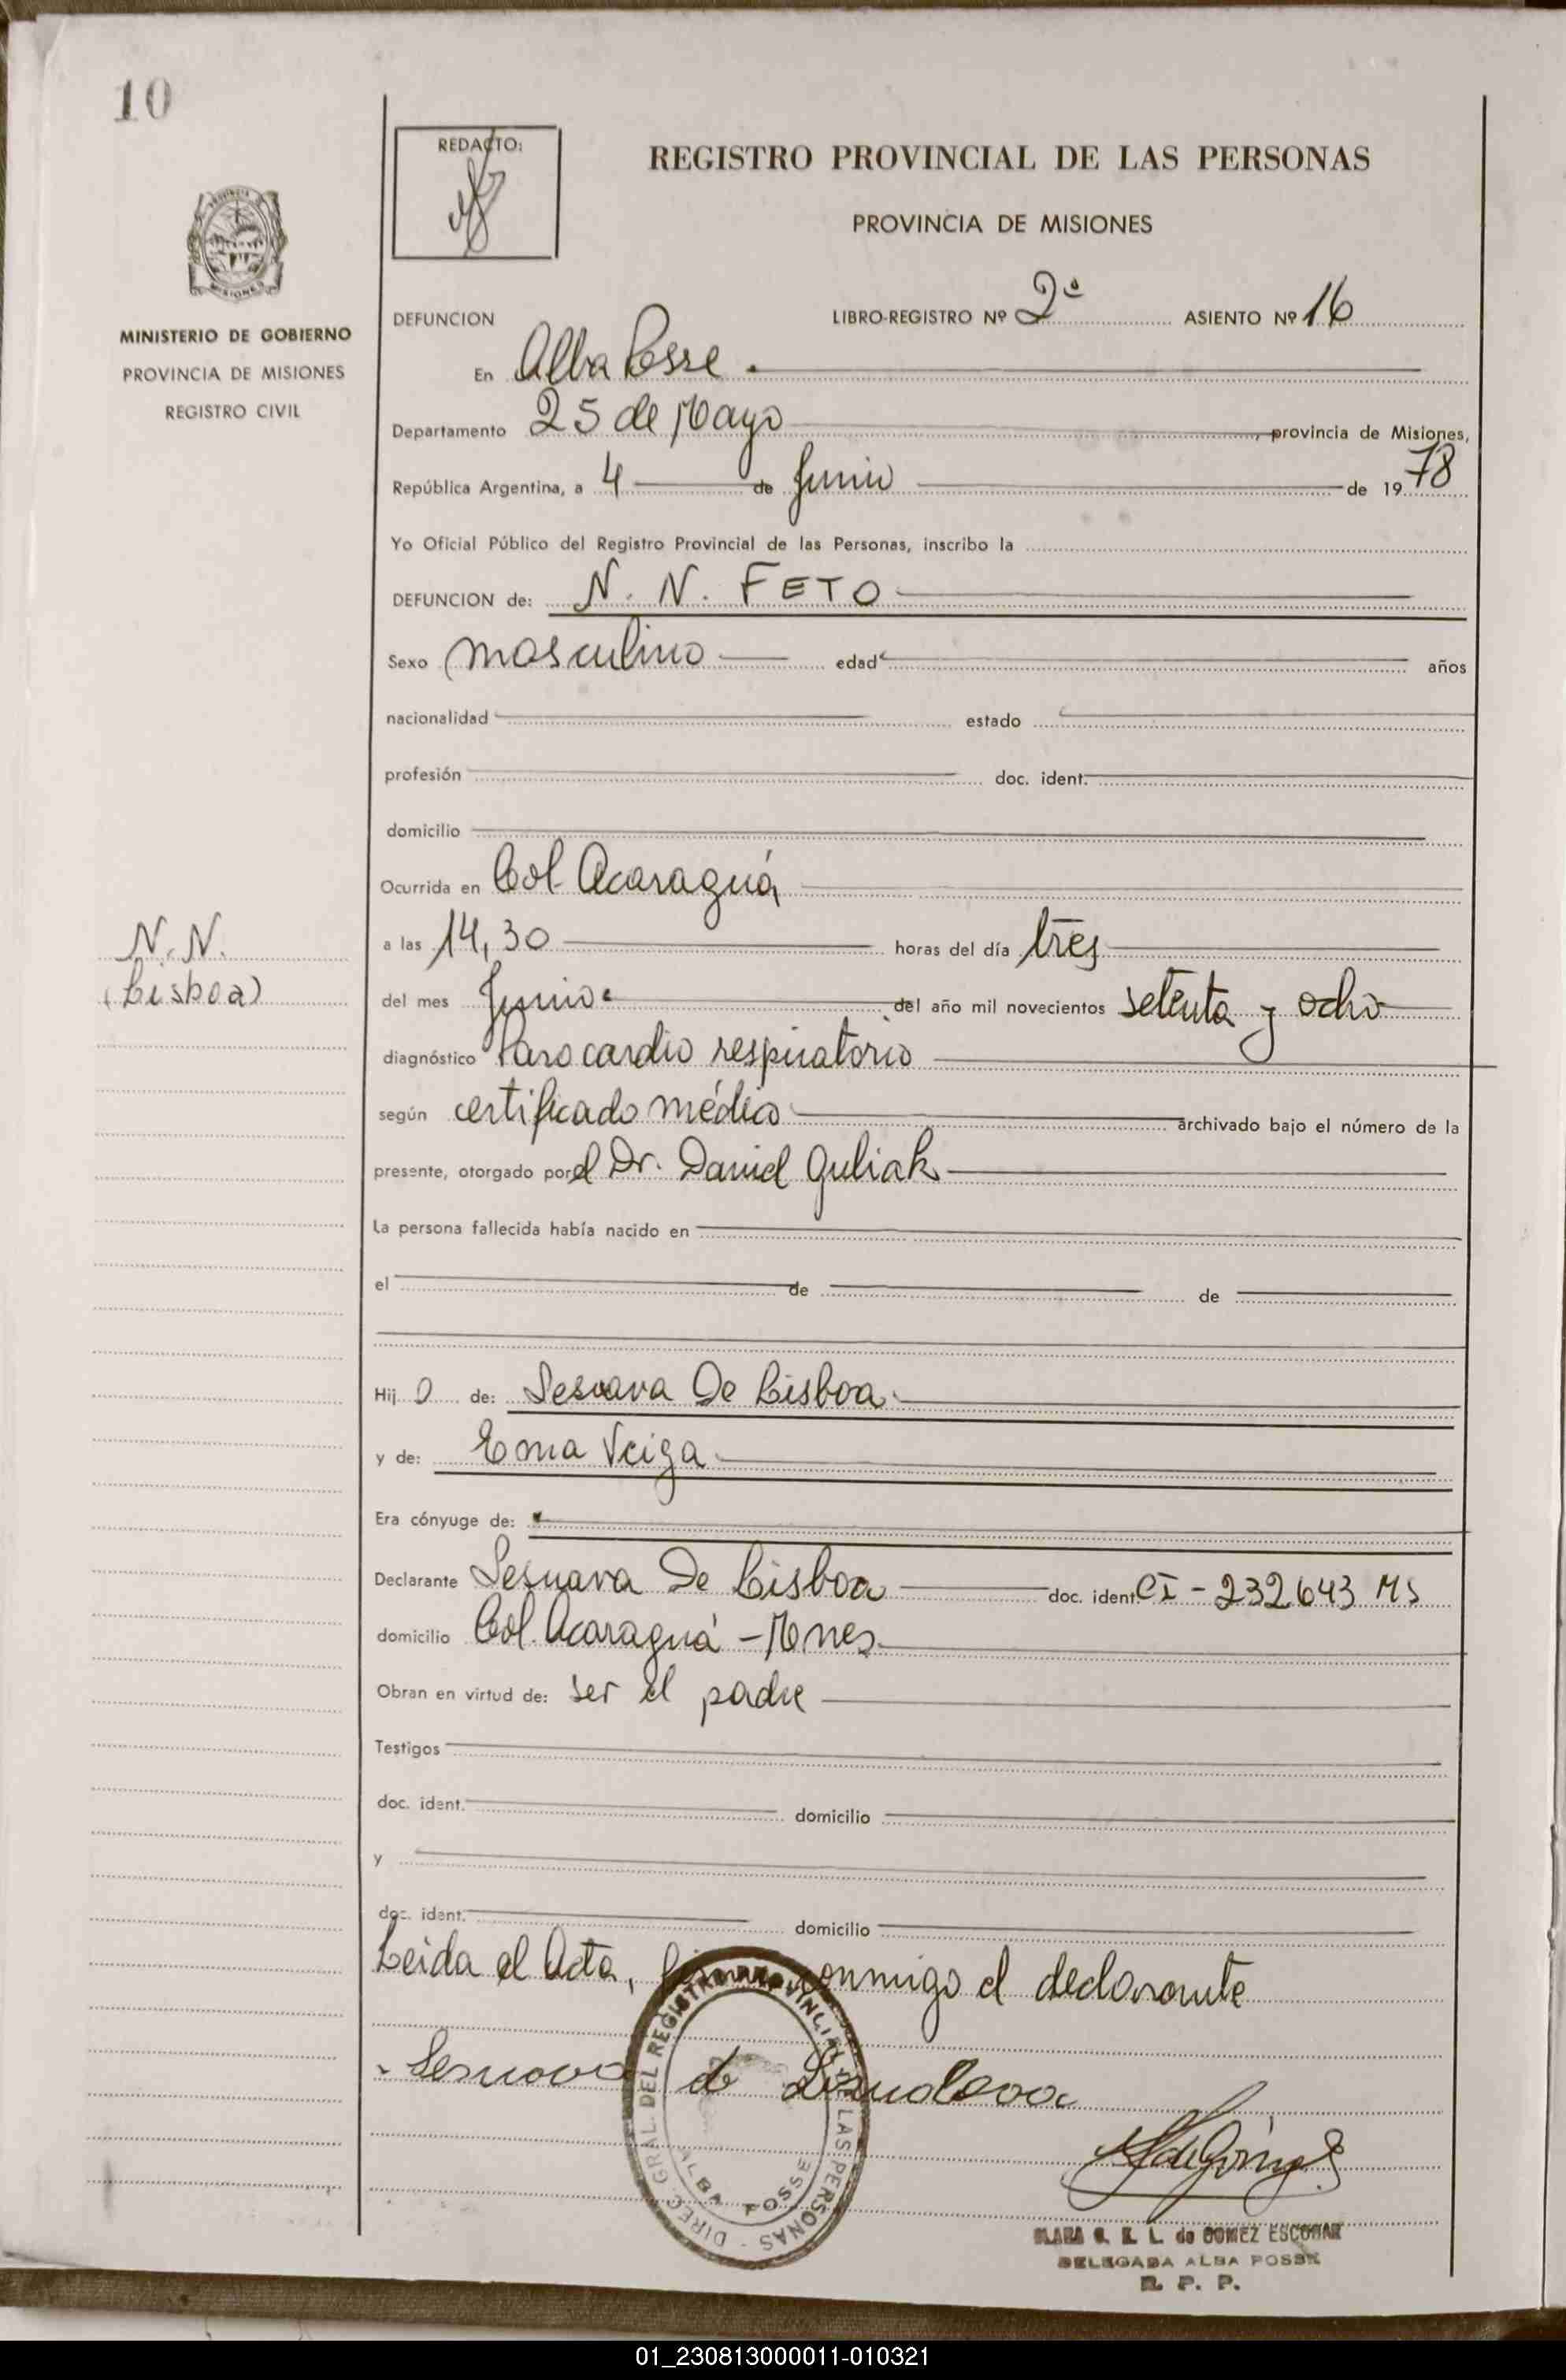 10
REDACTO:
REGISTRO PROVINCIAL DE LAS PERSONAS
PROVINCIA DE MISIONES
MISIONES
MINISTERIO DE GOBIERNO
PROVINCIA DE MISIONES
REGISTRO CIVIL
DEFUNCION LIBRO-REGISTRO Nº 2º ASIENTO Nº 16
En Alba Posse.
Departamento 25 de Mayo, provincia de Misiones,
República Argentina, a 4 de Junio de 1978
Yo Oficial Público del Registro Provincial de las Personas, inscribo la
DEFUNCION de: N. N. FETO
Sexo masculino edad años
nacionalidad estado
profesión doc. ident.
domicilio
Ocurrida en Col. Acaraguá
N. N.
(Lisboa)
a las 14,30 horas del día tres
del mes Junio del año mil novecientos setenta y ocho
diagnóstico Paro cardio respiratorio
según certificado médico archivado bajo el número de la
presente, otorgado por el Dr. Daniel Guliak
La persona fallecida había nacido en
el de de
Hijo de: De Lisboa
y de: Ema Veiga
Era cónyuge de:
Declarante De Lisboa doc. ident. CI - 232643 Ms
domicilio Col. Acaraguá - Mnes
Obran en virtud de: ser el padre
Testigos
doc. ident. domicilio
y
doc. ident. domicilio
Leida el Acta, firma conmigo el declarante
de
DIREC. GRAL. DEL REGISTRO PROVINCIAL DE LAS PERSONAS - ALBA POSSE
de GOMEZ ESCOBAR
DELEGADA ALBA POSSE
R. P. P.
01_230813000011-010321